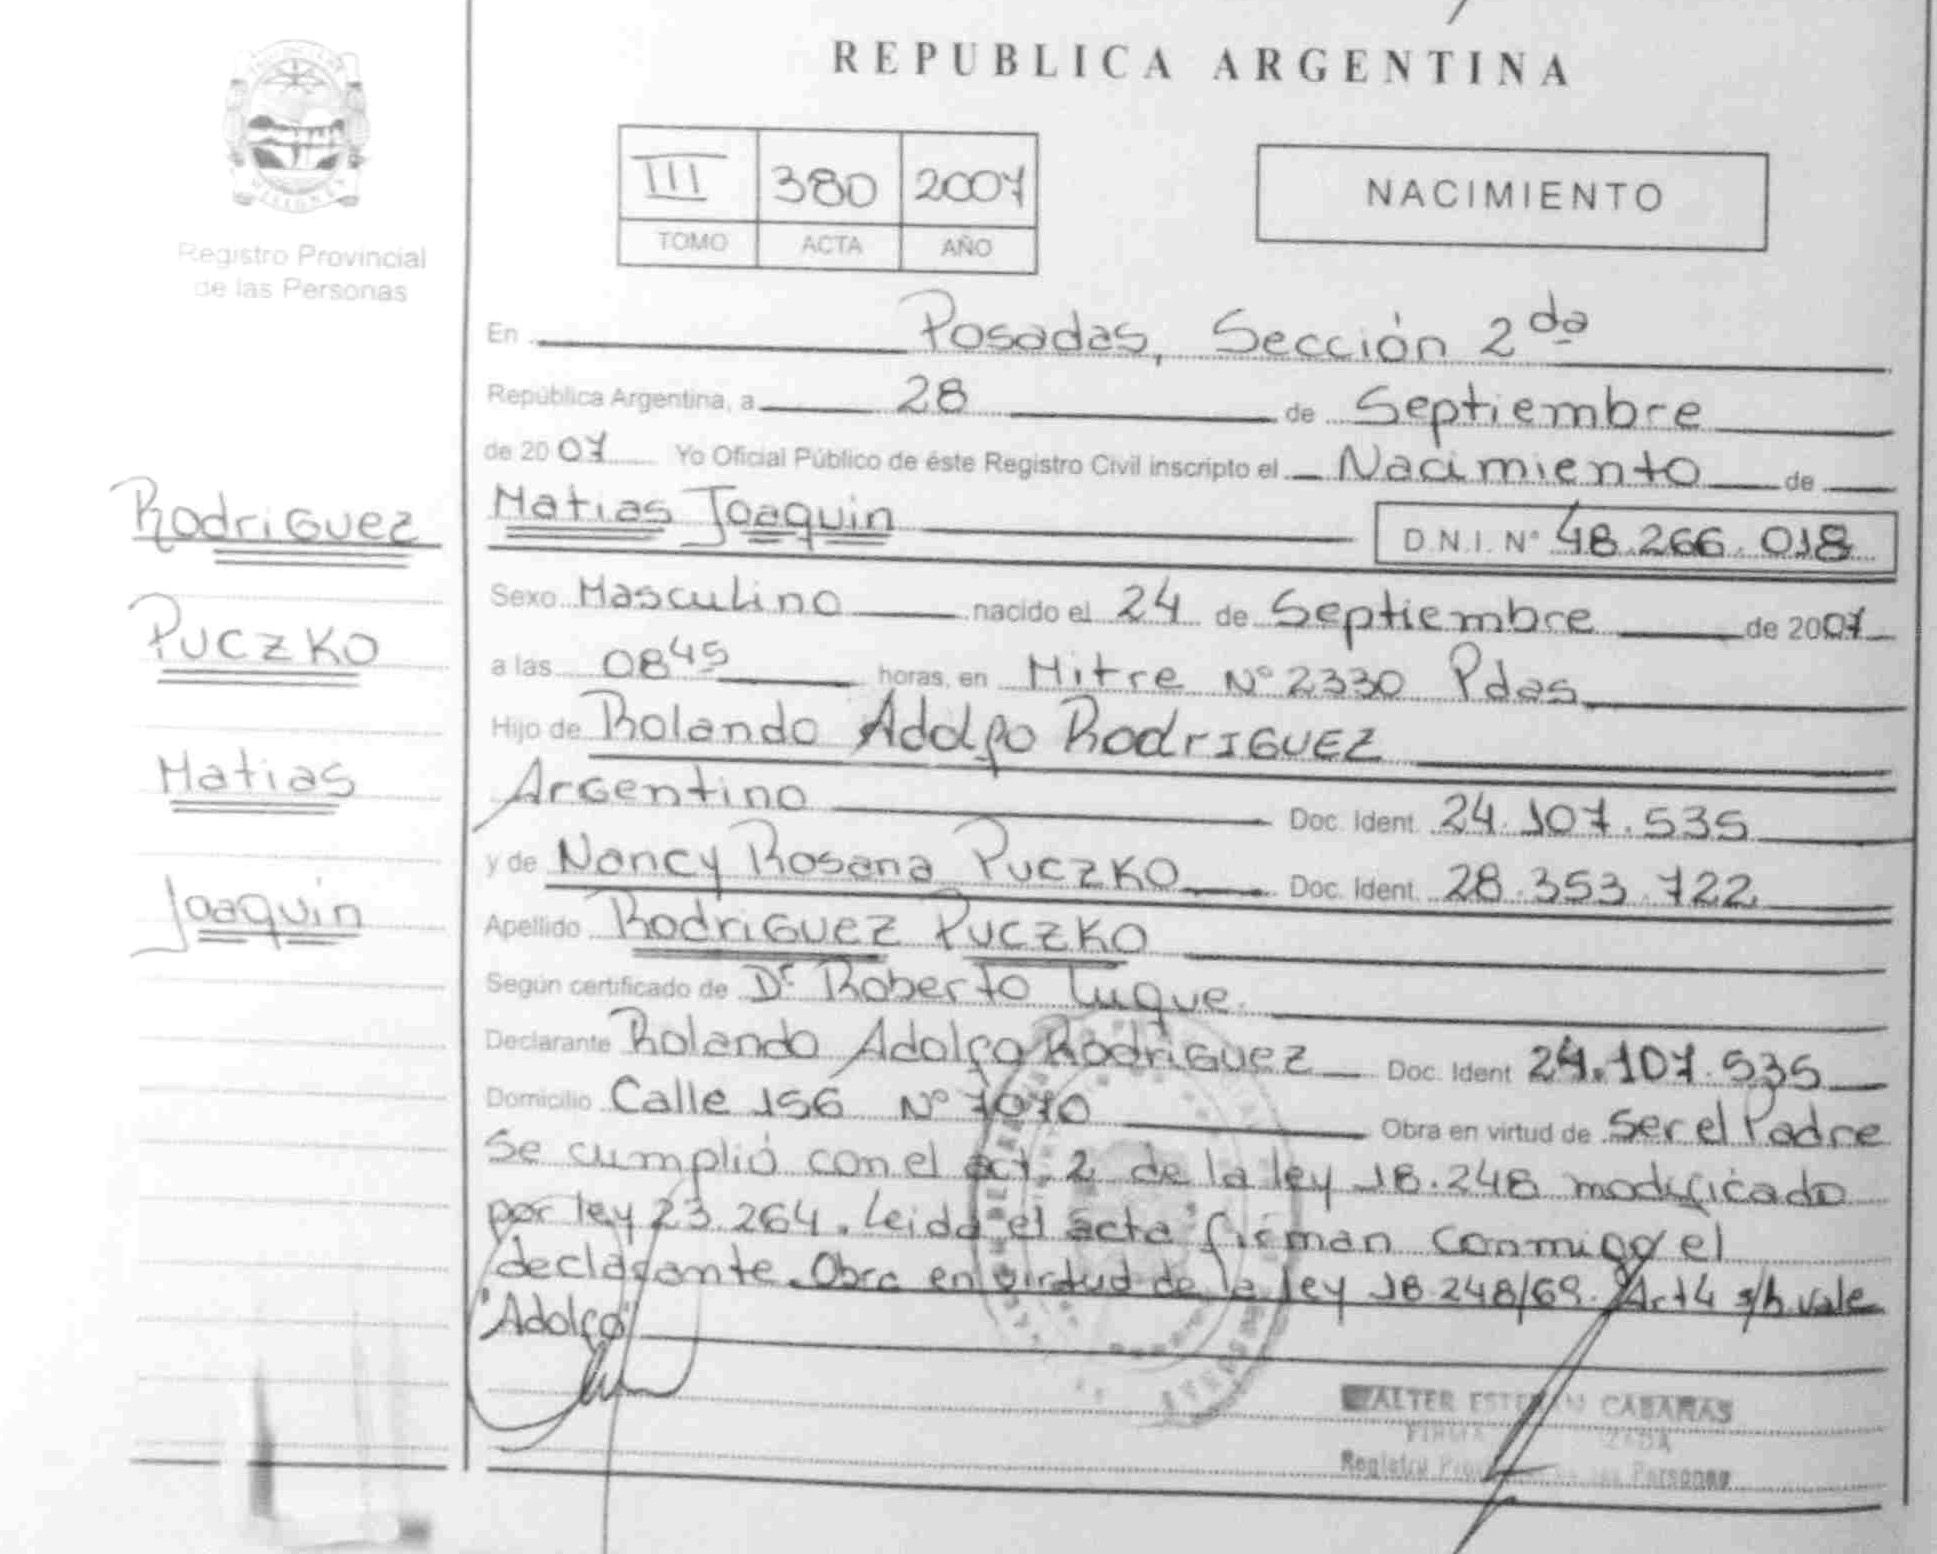 REPUBLICA ARGENTINA
PROVINCIA DE
MISIONES
Registro Provincial
de las Personas
III 380 2007
TOMO ACTA AÑO
NACIMIENTO
En Posadas, Sección 2da
República Argentina, a 28 de Septiembre
de 2007 Yo Oficial Público de éste Registro Civil inscripto el Nacimiento de
Matias Joaquin D.N.I. N° 48.266.018
Sexo Masculino nacido el 24 de Septiembre de 2007
a las 08 45 horas, en Mitre N° 2330 Pdas
Hijo de Rolando Adolfo RodrIGUEZ
Argentino Doc. Ident. 24.107.535
y de Nancy Rosana PUCZKO Doc. Ident. 28.353.722
Apellido RodriGUEZ PUCZKO
Según certificado de Dr Roberto Luque.
Declarante Rolando Adolfo RodriGUEZ Doc. Ident 24.107.535
Domicilio Calle 156 N° 7070 Obra en virtud de Ser el Padre
Se cumplió con el art. 2 de la ley 18.248 modificado
por ley 23.264. Leida el acta firman conmigo el
declarante. Obra en virtud de la ley 18.248/69. Art 4 s/b vale
"Adolfo"
WALTER ESTEBAN CABAÑAS
FIRMA
Registro Provincial de las Personas
RodriGUEZ
PUCZKO
Matias
Joaquin